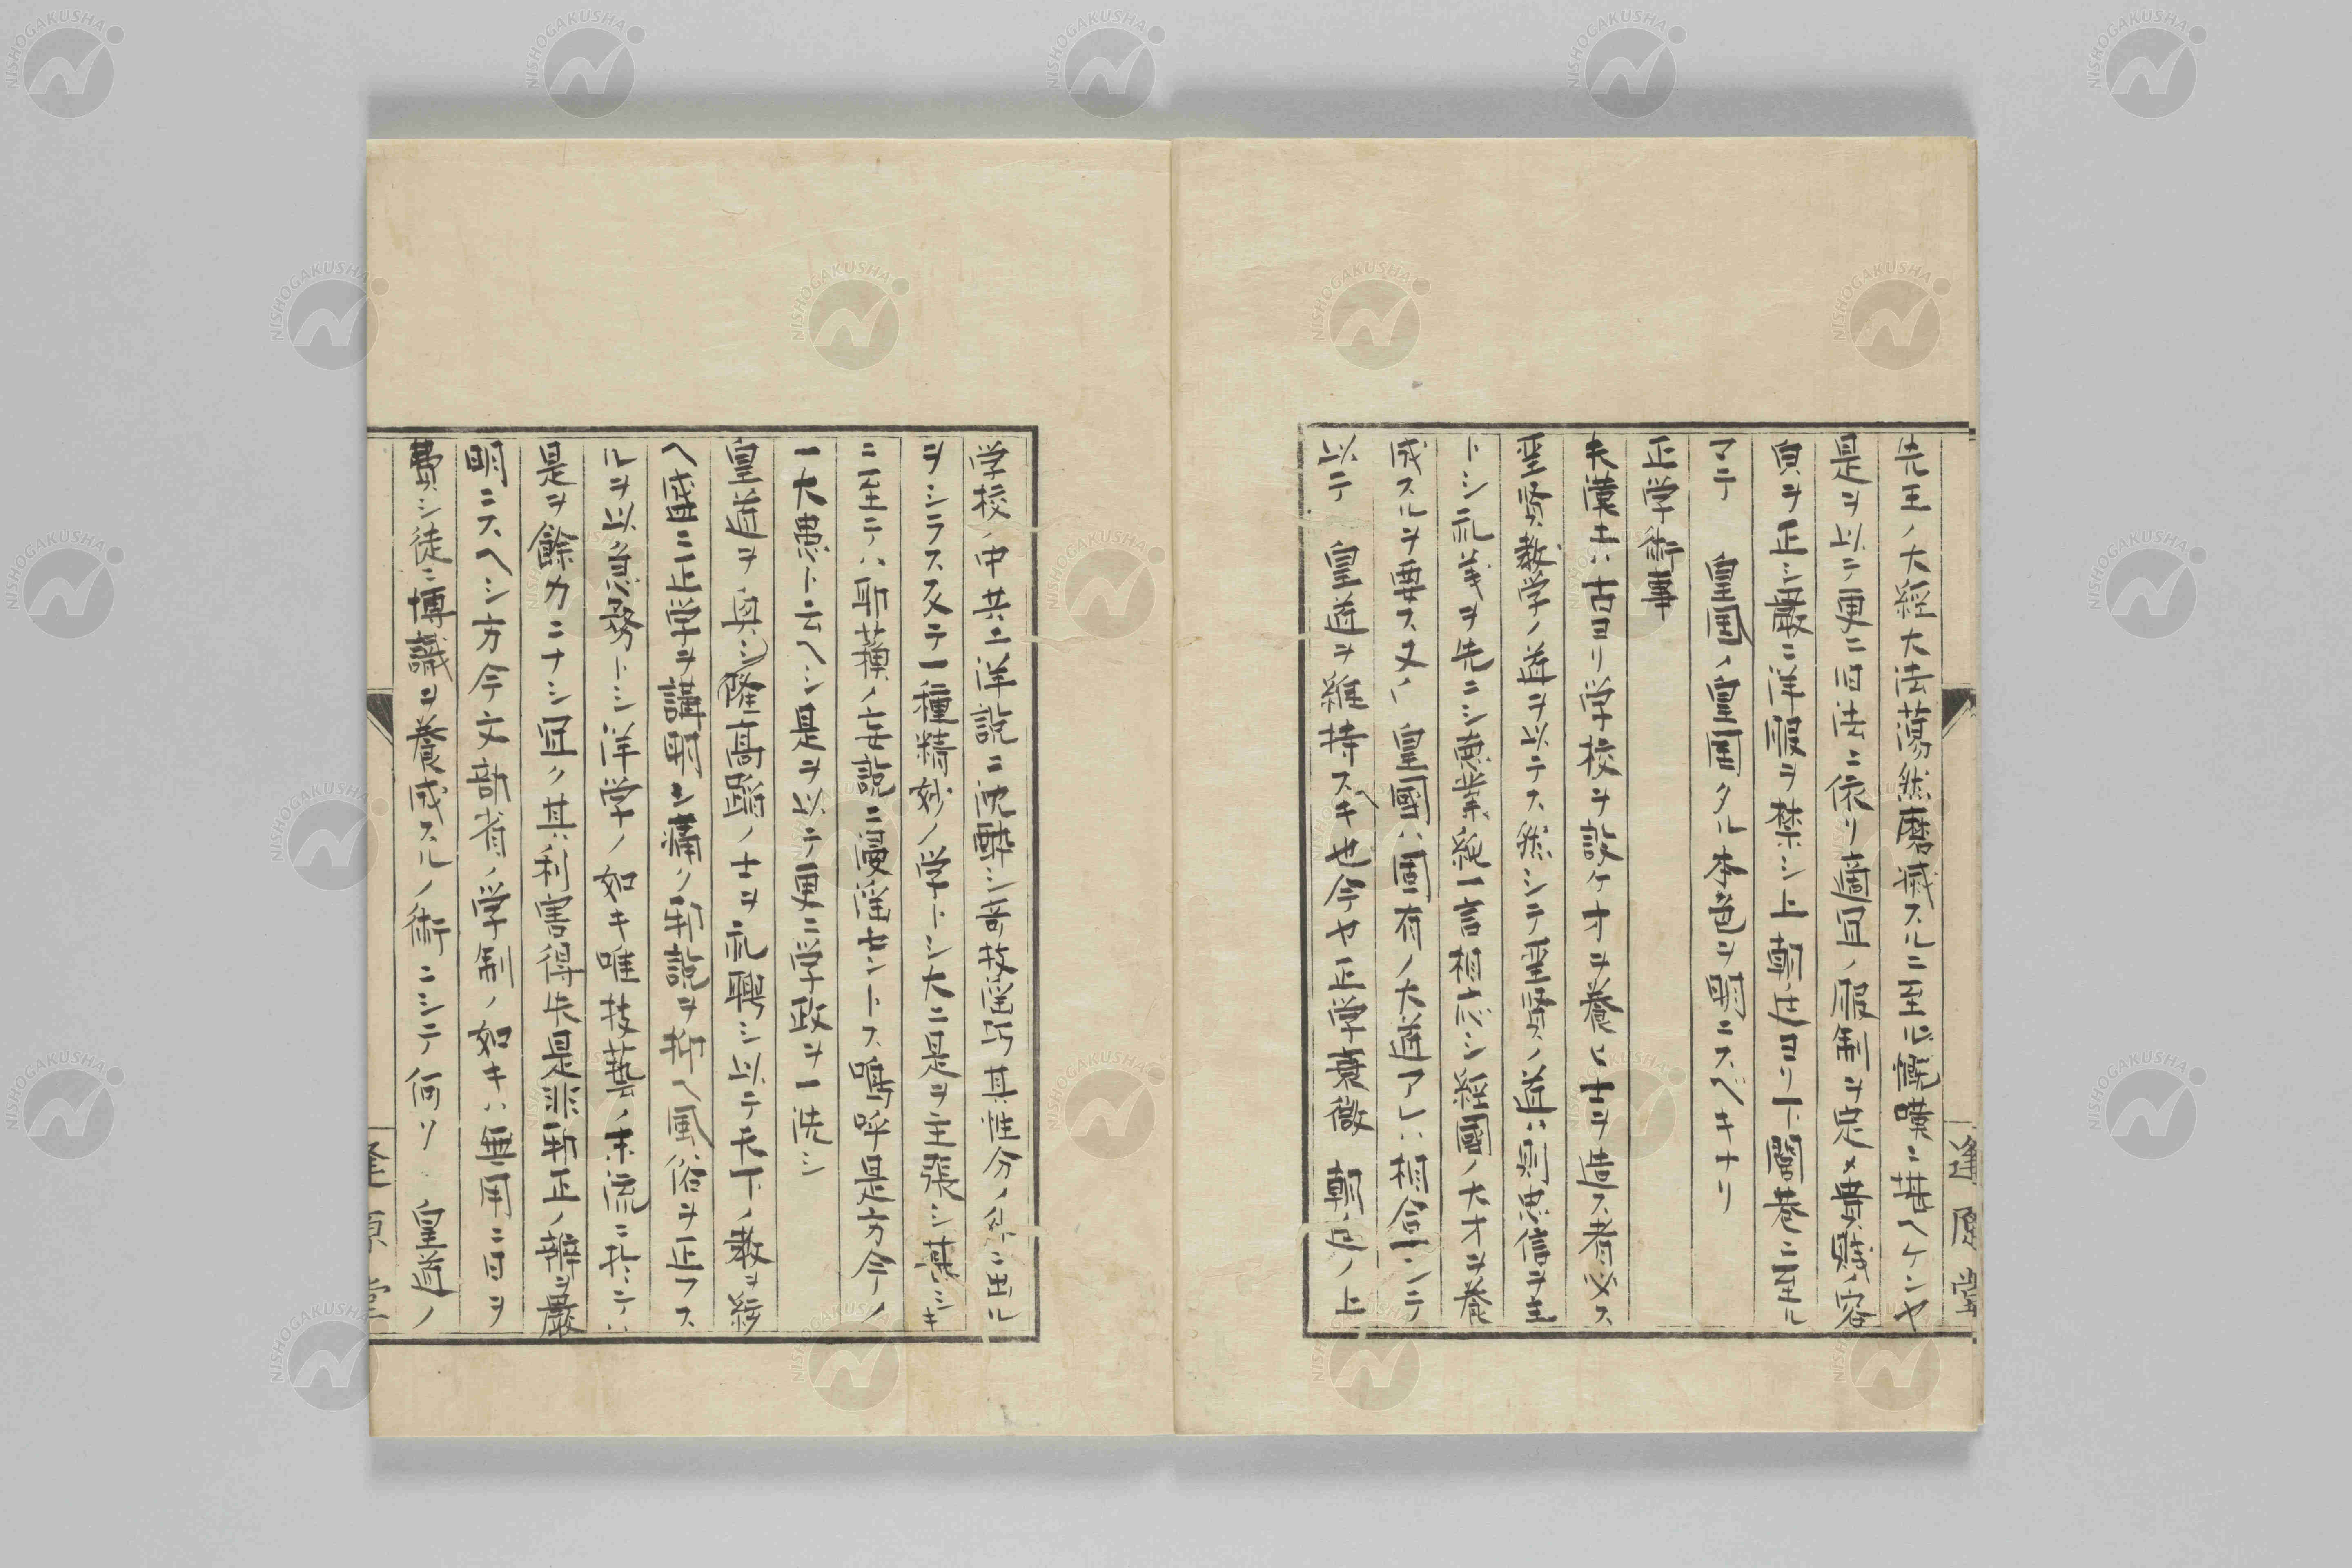 先王ノ大経大法蕩然磨滅スルニ至ル慨嘆ニ堪ヘケンヤ
是ヲ以テ更ニ旧法ニ依リ適宜ノ服制ヲ定メ貴賤ノ容
貞ヲ正シ厳ニ洋服ヲ禁シ上朝廷ヨリ下閭巷ニ至ル
マテ 皇国ノ皇国タル本色ヲ明ニスヘキナリ
正学術事
夫漢土ハ古ヨリ学校ヲ設ケ才ヲ養ヒ士ヲ造ス者必ス
聖賢教学ノ道ヲ以テス然シテ聖賢ノ道ハ則忠信ヲ主
トシ礼義ヲ先ニシ徳業純一言相応シ経国ノ大才ヲ養
成スルヲ要ス又ハ 皇国ハ固有ノ大道アレハ相合シテ
以テ 皇道ヲ維持スヘキ也今ヤ正学衰微 朝廷ノ上
学校ノ中共ニ洋説ニ沈酔シ奇技淫巧其性分ノ外ニ出ル
ヲシラス反テ一種精妙ノ学トシ大ニ是ヲ主張シ甚シキ
ニ至テハ耶蘇ノ妄説ニ浸淫セントス嗚呼是方今ノ
一大患ト云ヘシ是ヲ以テ更ニ学政ヲ一洗シ
皇道ヲ興シ隆高踏ノ士ヲ礼聘シ以テ天下ノ教ヲ統
ヘ盛ニ正学ヲ講明シ痛ク邪説ヲ排ヘ風俗ヲ正フス
ルヲ以急務トシ洋学ノ如キ唯技藝ノ末流ニ於テハ
是ヲ餘力ニナシ宜ク其利害得失是非邪正ノ辨ヲ厳
明ニスヘシ方今文部省ノ学制ノ如キハ無用ニ日ヲ
費シ徒ニ博識ヲ養成スルノ術ニシテ何ソ 皇道ノ
逢原堂
NISHOGAKUSHA